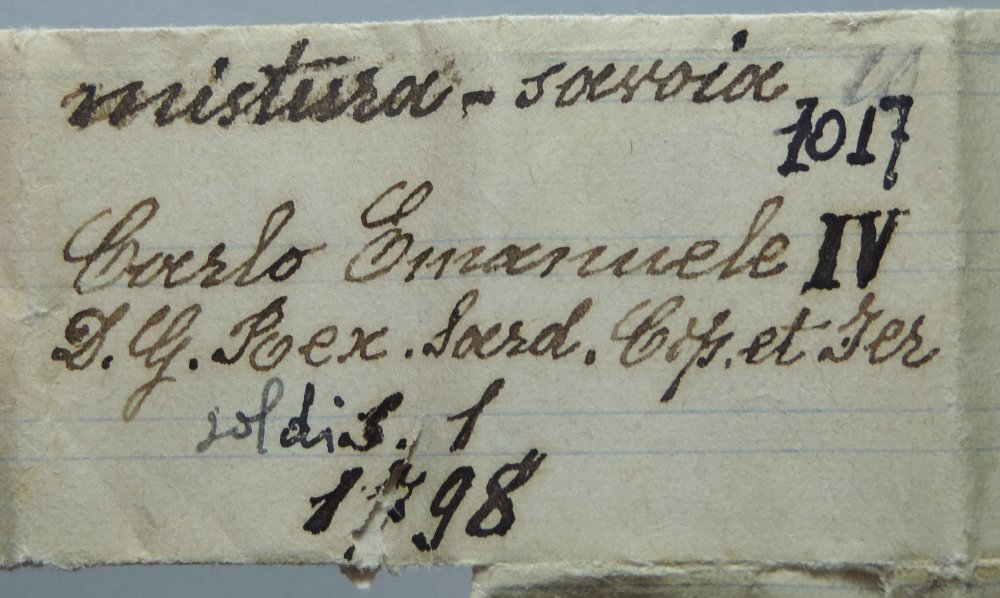 mistura - savoia
1017
Carlo Emanuele IV
D. G. Rex. Sard. Cip. et Ier
soldi S. 1
1798